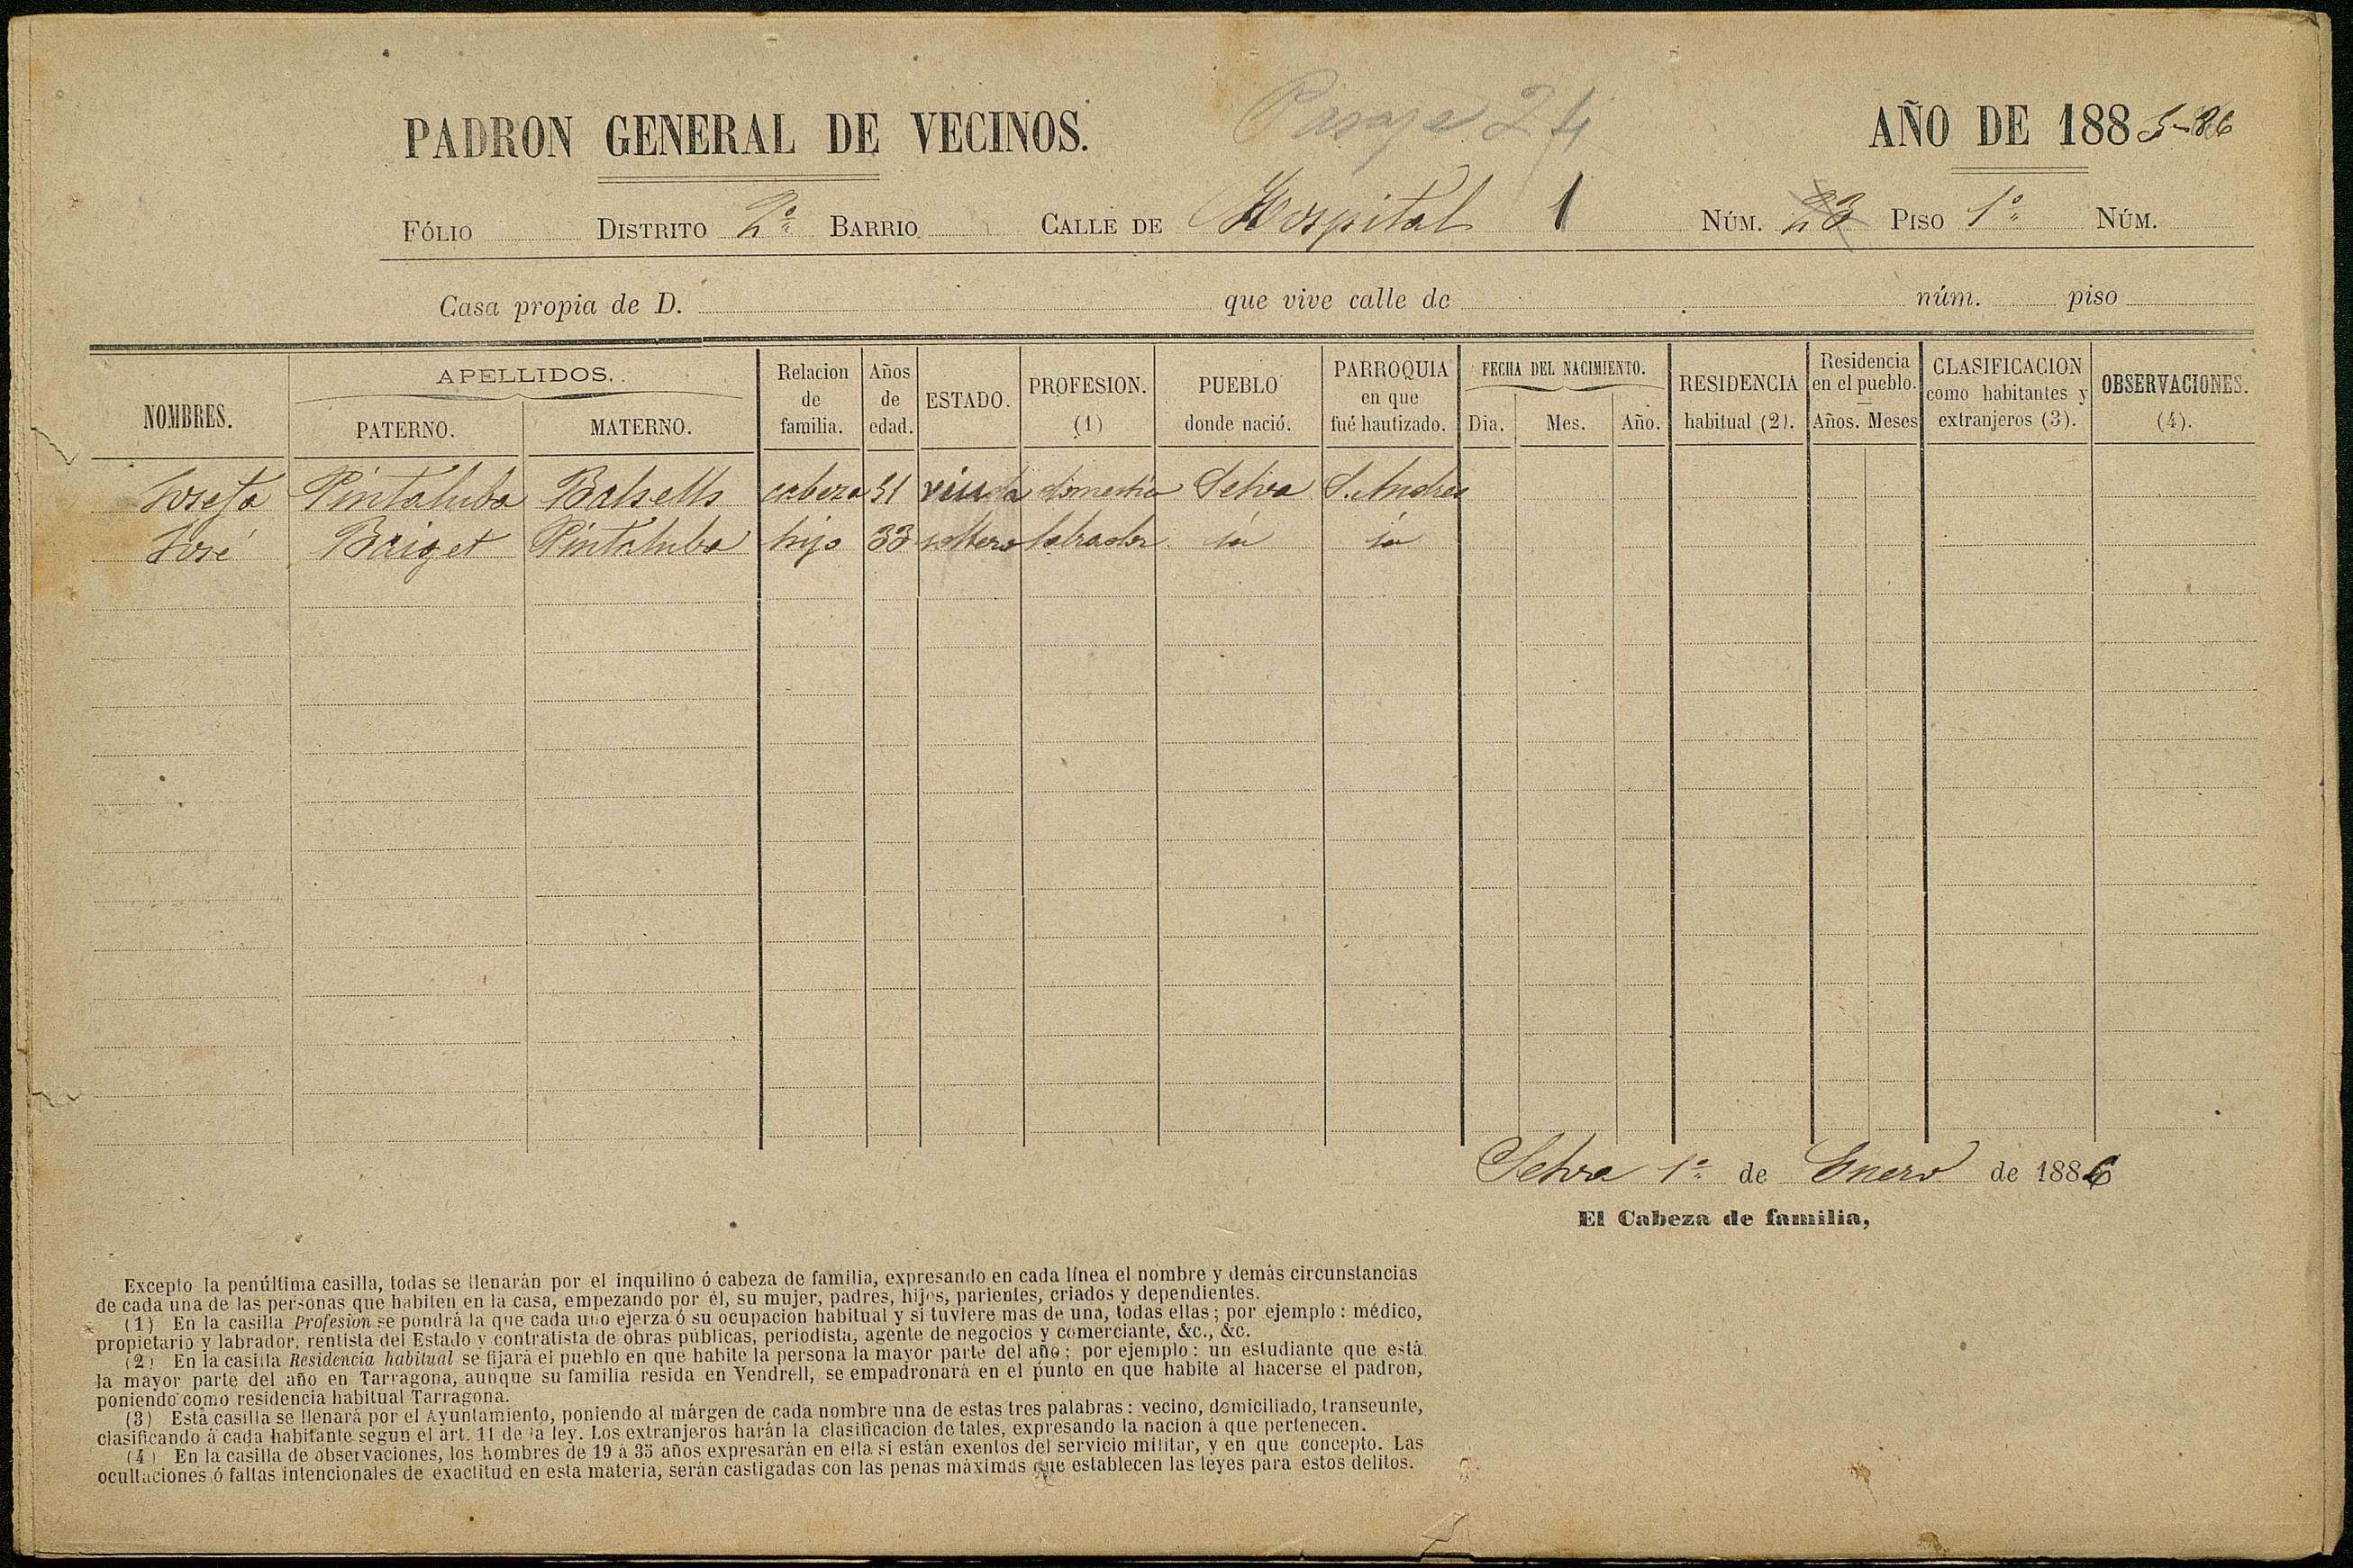 Pasaje 24
PADRON GENERAL DE VECINOS. AÑO DE 1885-86
FÓLIO DISTRITO 2º BARRIO CALLE DE Hospital 1 NÚM. 23 PISO 1º NÚM.
Casa propia de D. que vive calle de núm. piso
NOMBRES. APELLIDOS. PATERNO. MATERNO. Relacion de familia. Años de edad. ESTADO. PROFESION. (1) PUEBLO donde nació. PARROQUIA en que fué bautizado. FECHA DEL NACIMIENTO. Dia. Mes. Año. RESIDENCIA habitual (2). Residencia en el pueblo. Años. Meses CLASIFICACION como habitantes y extranjeros (3). OBSERVACIONES. (4).
Josefa Pintaluba Balsells cabeza 51 viuda domestica Selva S. Andres
José Baiget Pintaluba hijo 33 soltero labrador id id
Selva 1º de Enero de 1886
El Cabeza de familia,
Excepto la penúltima casilla, todas se llenarán por el inquilino ó cabeza de familia, expresando en cada línea el nombre y demás circunstancias
de cada una de las personas que habiten en la casa, empezando por él, su mujer, padres, hijos, parientes, criados y dependientes.
(1) En la casilla Profesion se pondrá la que cada uno ejerza ó su ocupacion habitual y si tuviere mas de una, todas ellas; por ejemplo: médico,
propietario y labrador, rentista del Estado y contratista de obras públicas, periodista, agente de negocios y comerciante, &c., &c.
(2) En la casilla Residencia habitual se fijará el pueblo en que habite la persona la mayor parte del año; por ejemplo: un estudiante que está
la mayor parte del año en Tarragona, aunque su familia resida en Vendrell, se empadronará en el punto en que habite al hacerse el padron,
poniendo como residencia habitual Tarragona.
(3) Esta casilla se llenará por el Ayuntamiento, poniendo al márgen de cada nombre una de estas tres palabras: vecino, domiciliado, transeunte,
clasificando á cada habitante segun el art. 11 de la ley. Los extranjeros harán la clasificacion de tales, expresando la nacion á que pertenecen.
(4) En la casilla de observaciones, los hombres de 19 á 35 años expresarán en ella si están exentos del servicio militar, y en que concepto. Las
ocultaciones ó faltas intencionales de exactitud en esta materia, serán castigadas con las penas máximas que establecen las leyes para estos delitos.